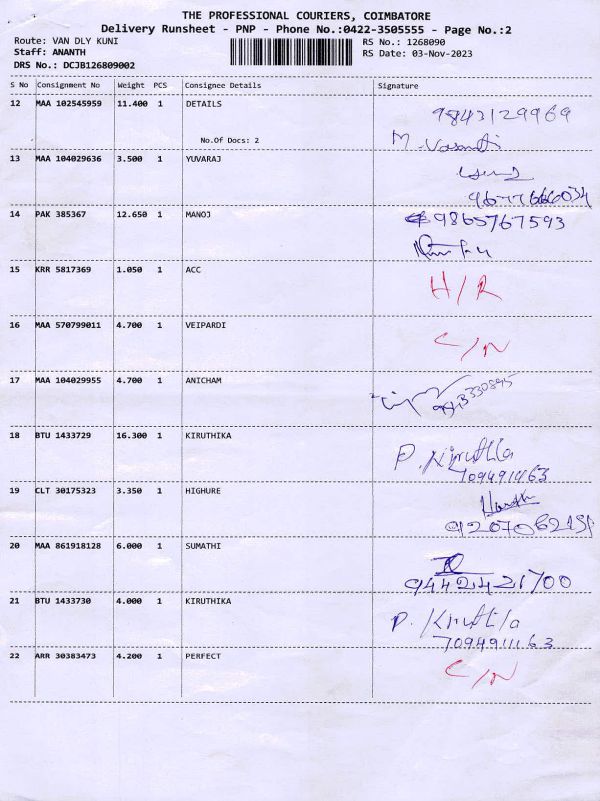 THE PROFESSIONAL COURIERS, COIMBATORE
Delivery Runsheet - PNP - Phone No.:0422-3505555 - Page No.:2
Route: VAN DLY KUNI RS No.: 1268090
Staff: ANANTH RS Date: 03-Nov-2023
DRS No.: DCJB126809002
S No Consignment No Weight PCS Consignee Details Signature
12 MAA 102545959 11.400 1 DETAILS 9843129969
No.Of Docs: 2 M. Vasanti
13 MAA 104029636 3.500 1 YUVARAJ
9677666034
14 PAK 385367 12.650 1 MANOJ 9865767593
15 KRR 5817369 1.050 1 ACC H/R
16 MAA 570799011 4.700 1 VEIPARDI C/N
17 MAA 104029955 4.700 1 ANICHAM
18 BTU 1433729 16.300 1 KIRUTHIKA P. Kiruthla
19 CLT 30175323 3.350 1 HIGHURE
20 MAA 861918128 6.000 1 SUMATHI
9442421700
21 BTU 1433730 4.000 1 KIRUTHIKA P. Kiruthla
7094911163
22 ARR 30383473 4.200 1 PERFECT C/N